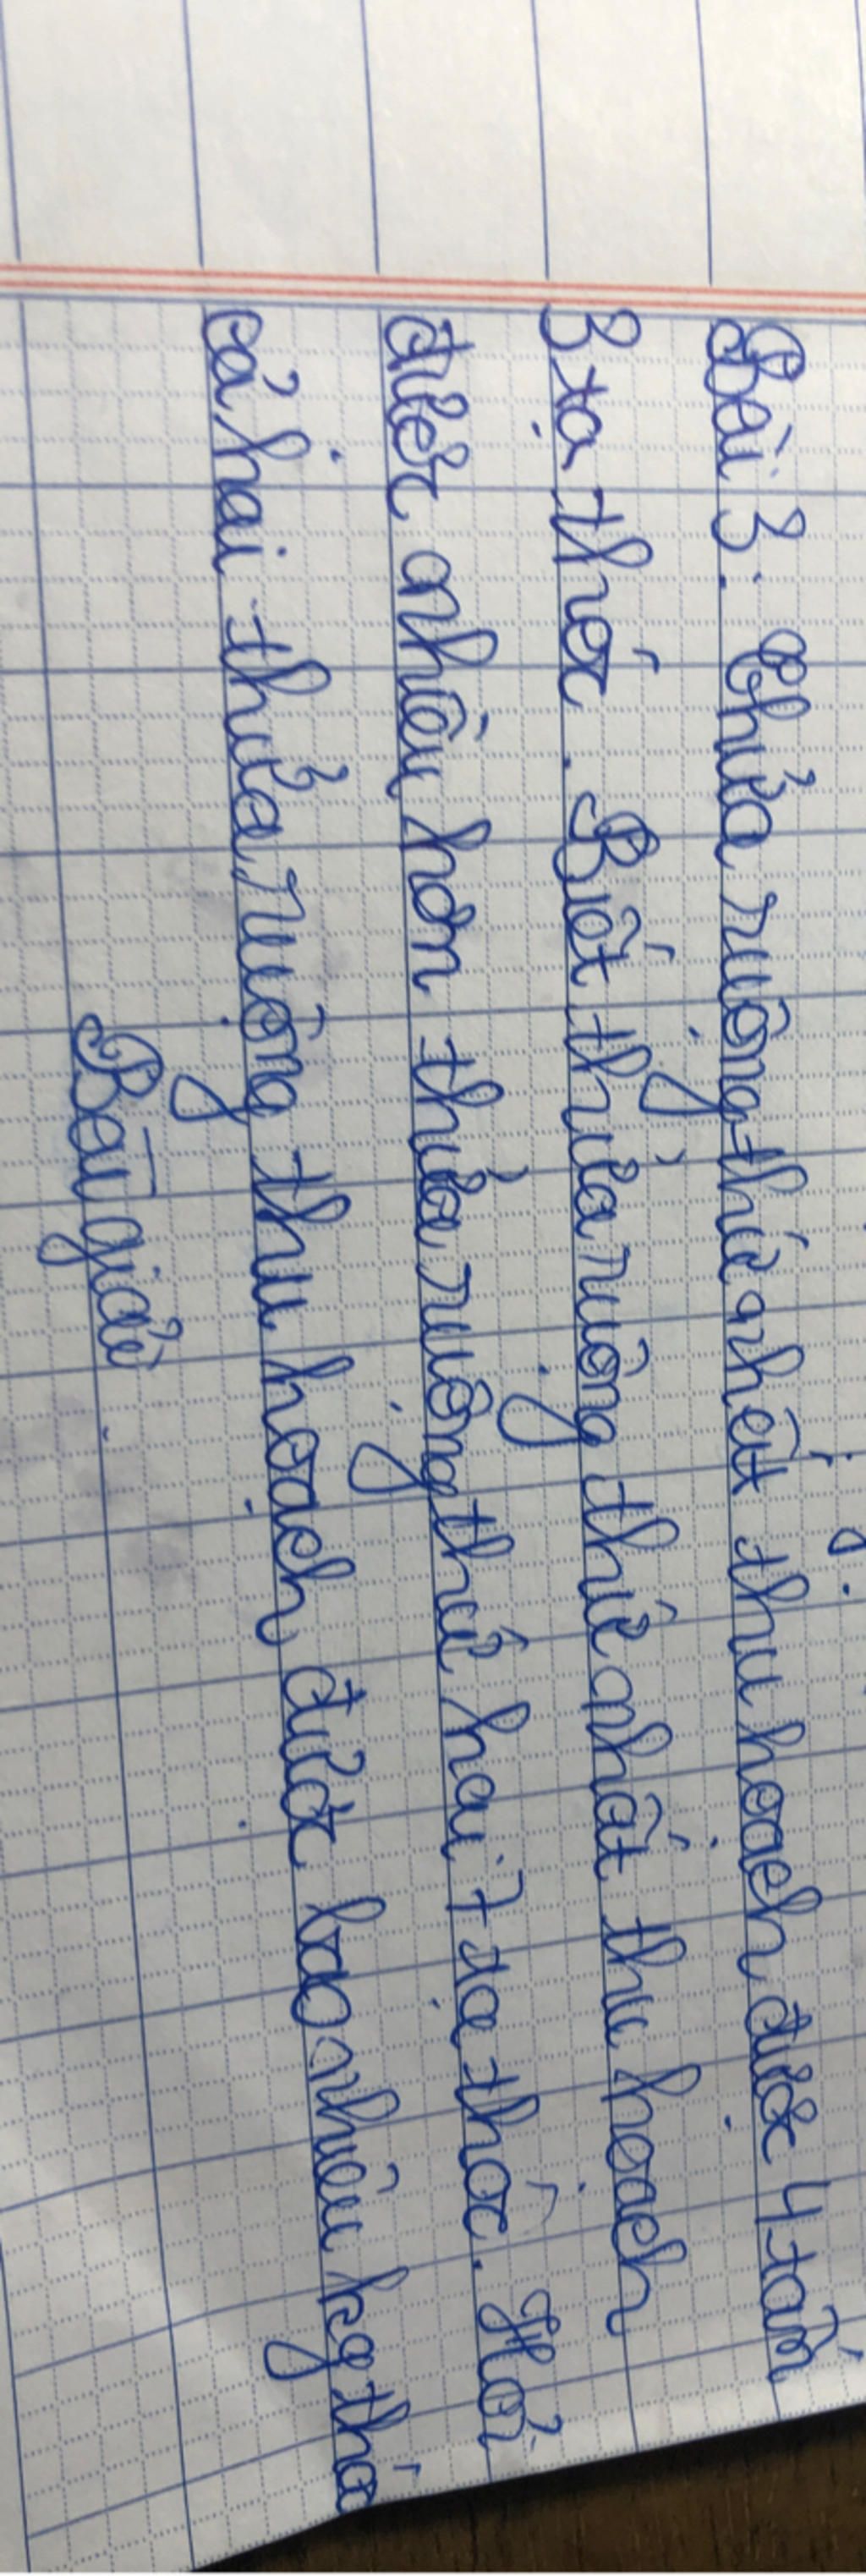 Bài 3. Thửa ruộng thứ nhất thu hoạch được 4 tấn
3 tạ thóc. Biết thửa ruộng thứ nhất thu hoạch
được nhiều hơn thửa ruộng thứ hai 7 tạ thóc. Hỏi
cả hai thửa ruộng thu hoạch được bao nhiêu kg thó
Bài giải